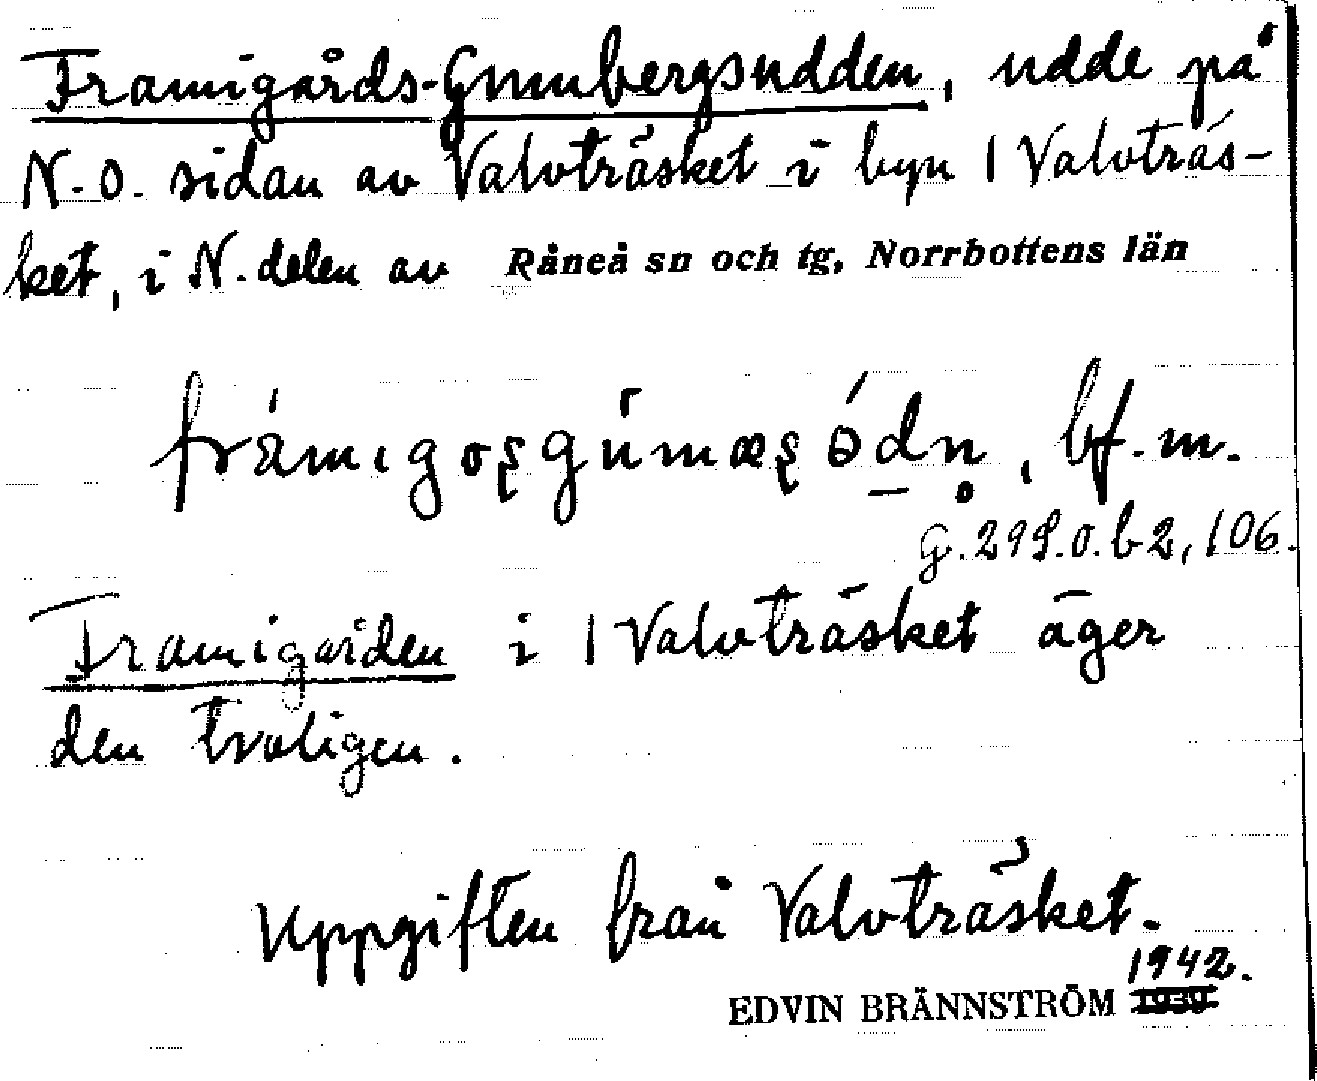 Framigårds-Gumbergsudden, udde på
N.O. sidan av Valvträsket i byn 1 Valvträs-
ket, i N. delen av Råneå sn och tg, Norrbottens län
bf. m.
G. 
Framigården i 1 Valvträsket äger
den troligen.
Uppgiften från Valvträsket.
1942.
EDVIN BRÄNNSTRÖM 1939